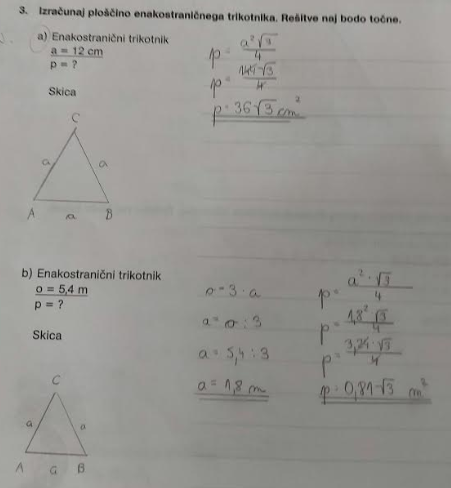 3. Izračunaj ploščino enakostraničnega trikotnika. Rešitve naj bodo točne.
a) Enakostranični trikotnik
a = 12 cm
p = ?
Skica
p = a²√3 / 4
p = 144√3 / 4
p = 36√3 cm²
C
a a
A a B
b) Enakostranični trikotnik
o = 5,4 m
p = ?
Skica
o = 3 · a
a = o : 3
a = 5,4 : 3
a = 1,8 m
p = a² · √3 / 4
p = 1,8² √3 / 4
p = 3,24 · √3 / 4
p = 0,81√3 m²
C
a a
A a B